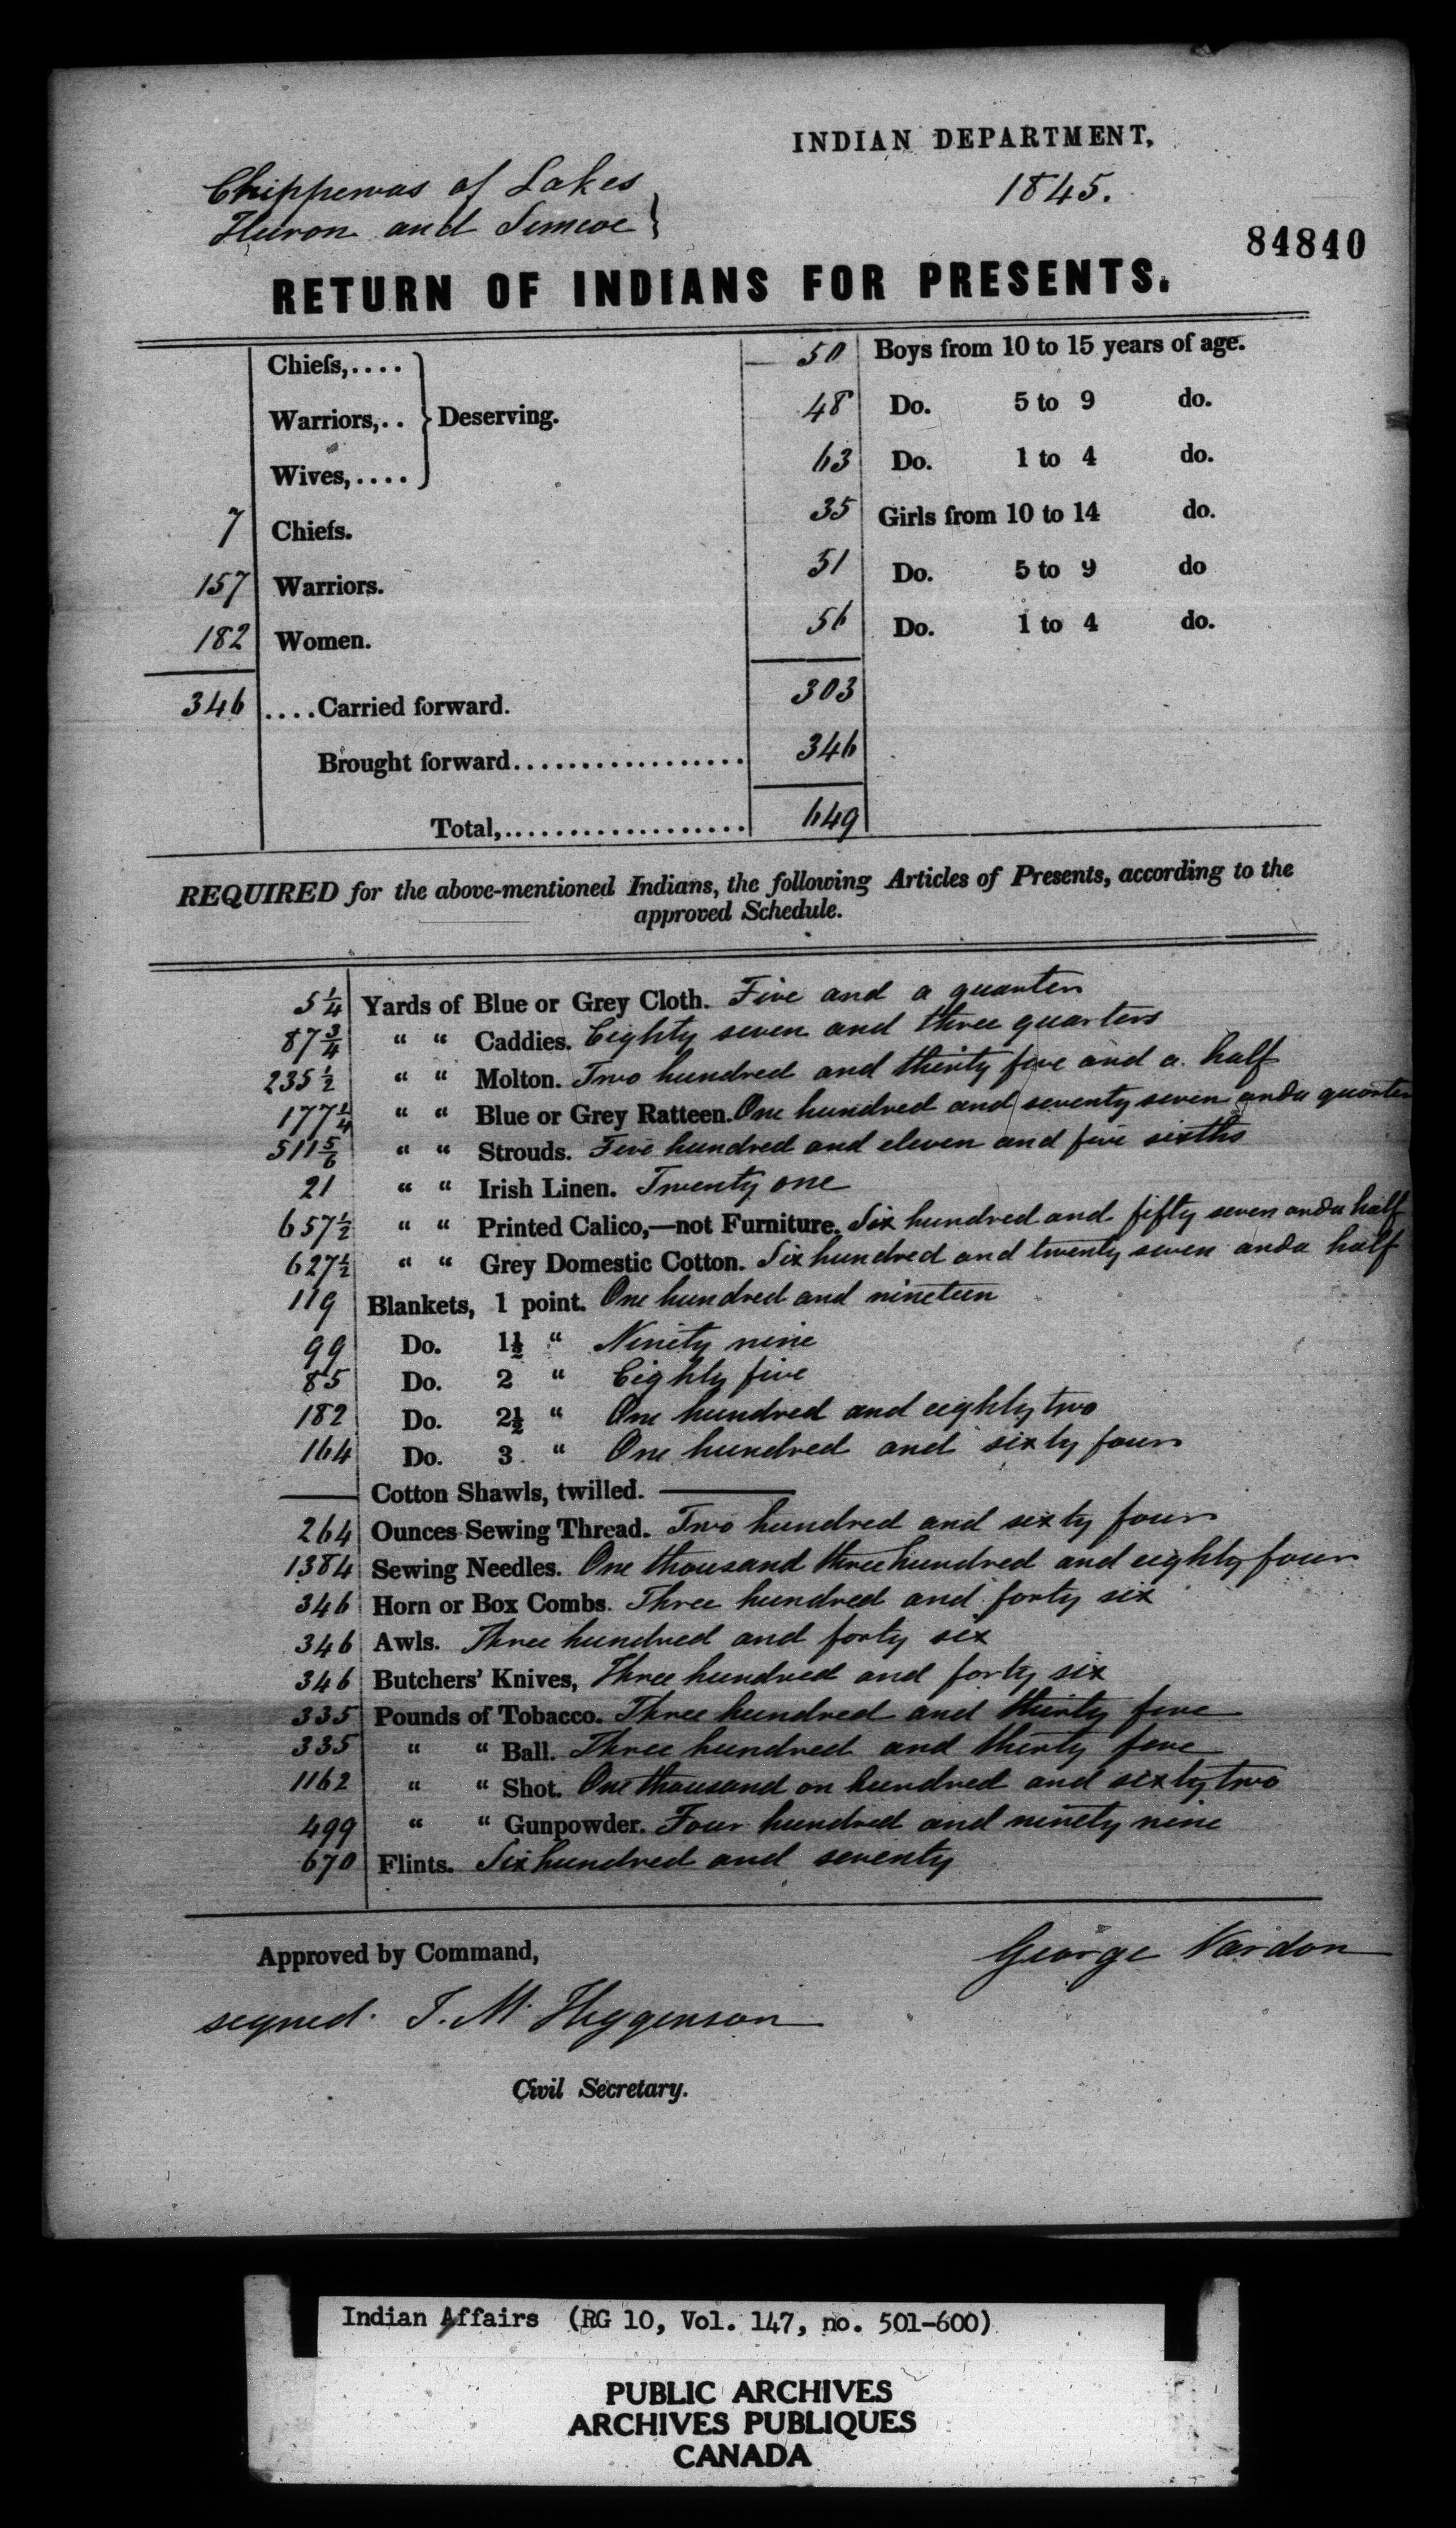 INDIAN DEPARTMENT,
1845.
Chippewas of Lakes
Huron and Simcoe }
84840
RETURN OF INDIANS FOR PRESENTS.
Chiefs,....
Warriors,.. } Deserving.
Wives,....
7 Chiefs.
157 Warriors.
182 Women.
346 ....Carried forward.
50 Boys from 10 to 15 years of age.
48 Do. 5 to 9 do.
63 Do. 1 to 4 do.
35 Girls from 10 to 14 do.
51 Do. 5 to 9 do
56 Do. 1 to 4 do.
303
Brought forward.................. 346
Total,.................... 649
REQUIRED for the above-mentioned Indians, the following Articles of Presents, according to the
approved Schedule.
5 1/4 Yards of Blue or Grey Cloth. Five and a quarter
87 3/4 " " Caddies. Eighty seven and three quarters
235 1/2 " " Molton. Two hundred and thirty five and a half
177 1/4 " " Blue or Grey Ratteen. One hundred and seventy seven and a quarter
511 5/6 " " Strouds. Five hundred and eleven and five sixths
21 " " Irish Linen. Twenty one
657 1/2 " " Printed Calico,—not Furniture. Six hundred and fifty seven and a half
627 1/2 " " Grey Domestic Cotton. Six hundred and twenty seven and a half
119 Blankets, 1 point. One hundred and nineteen
99 Do. 1½ " Ninety nine
85 Do. 2 " Eighty five
182 Do. 2½ " One hundred and eighty two
164 Do. 3 " One hundred and sixty four
— Cotton Shawls, twilled. —
264 Ounces Sewing Thread. Two hundred and sixty four
1384 Sewing Needles. One thousand three hundred and eighty four
346 Horn or Box Combs. Three hundred and forty six
346 Awls. Three hundred and forty six
346 Butchers' Knives, Three hundred and forty six
335 Pounds of Tobacco. Three hundred and thirty five
335 " " Ball. Three hundred and thirty five
1162 " " Shot. One thousand on hundred and sixty two
499 " " Gunpowder. Four hundred and ninety nine
670 Flints. Six hundred and seventy
Approved by Command,
George Vardon
signed. J. M. Higgenson
Civil Secretary.
Indian Affairs (RG 10, Vol. 147, no. 501-600)
PUBLIC ARCHIVES
ARCHIVES PUBLIQUES
CANADA